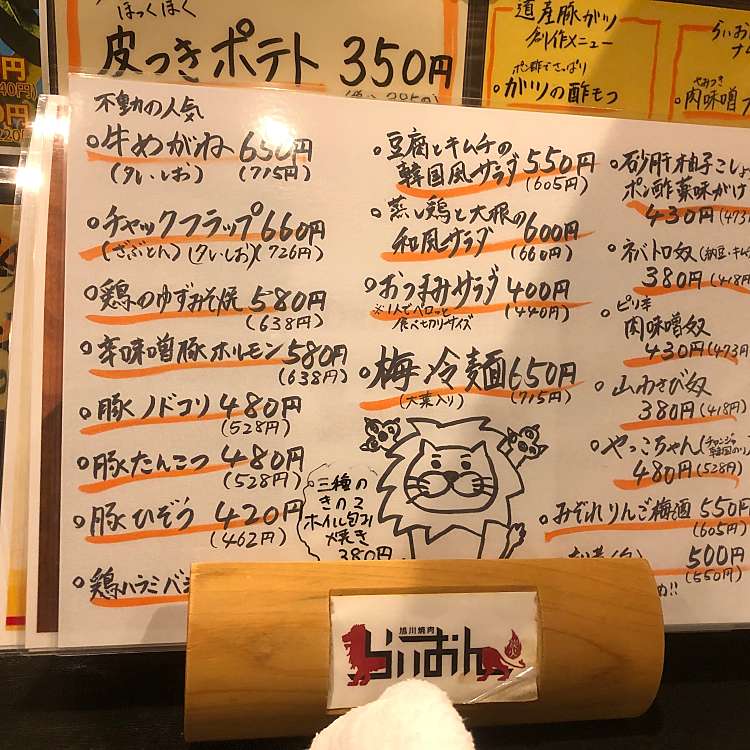 ほっくほく
皮つきポテト 350円
道産豚ガツ
創作メニュー
ポン酢でさっぱり
ガツの酢もつ
らいお
肉味噌
不動の人気
牛めがね 650円
(タレ・しお) (715円)
チャックフラップ 660円
(ざぶとん) (タレ・しお) (726円)
鶏のゆずみそ焼 580円
(638円)
辛味噌豚ホルモン 580円
(638円)
豚ノドコリ 480円
(528円)
豚たんこつ 480円
(528円)
豚ひぞう 420円
(462円)
鶏ハラミバ
豆腐とキムチの
韓国風サラダ 550円
(605円)
蒸し鶏と大根の
和風サラダ 600円
(660円)
おつまみサラダ 400円
※1人でペロッと
食べ切りサイズ (440円)
梅冷麺 650円
(大葉入り) (715円)
三種の
きのこ
ホイル包み
焼き
380円
砂肝柚子こしょ
ポン酢薬味がけ
430円 (473円
ネバトロ奴 (納豆・キム
380円 (418円
ピリ辛
肉味噌奴
430円 (473円
山わさび奴
380円 (418円)
やっこちゃん (チャンジャ
韓国のり
480円 (528円)
みぞれりんご梅酒 550円
(605円)
500円
(550円)
旭川焼肉
らいおん